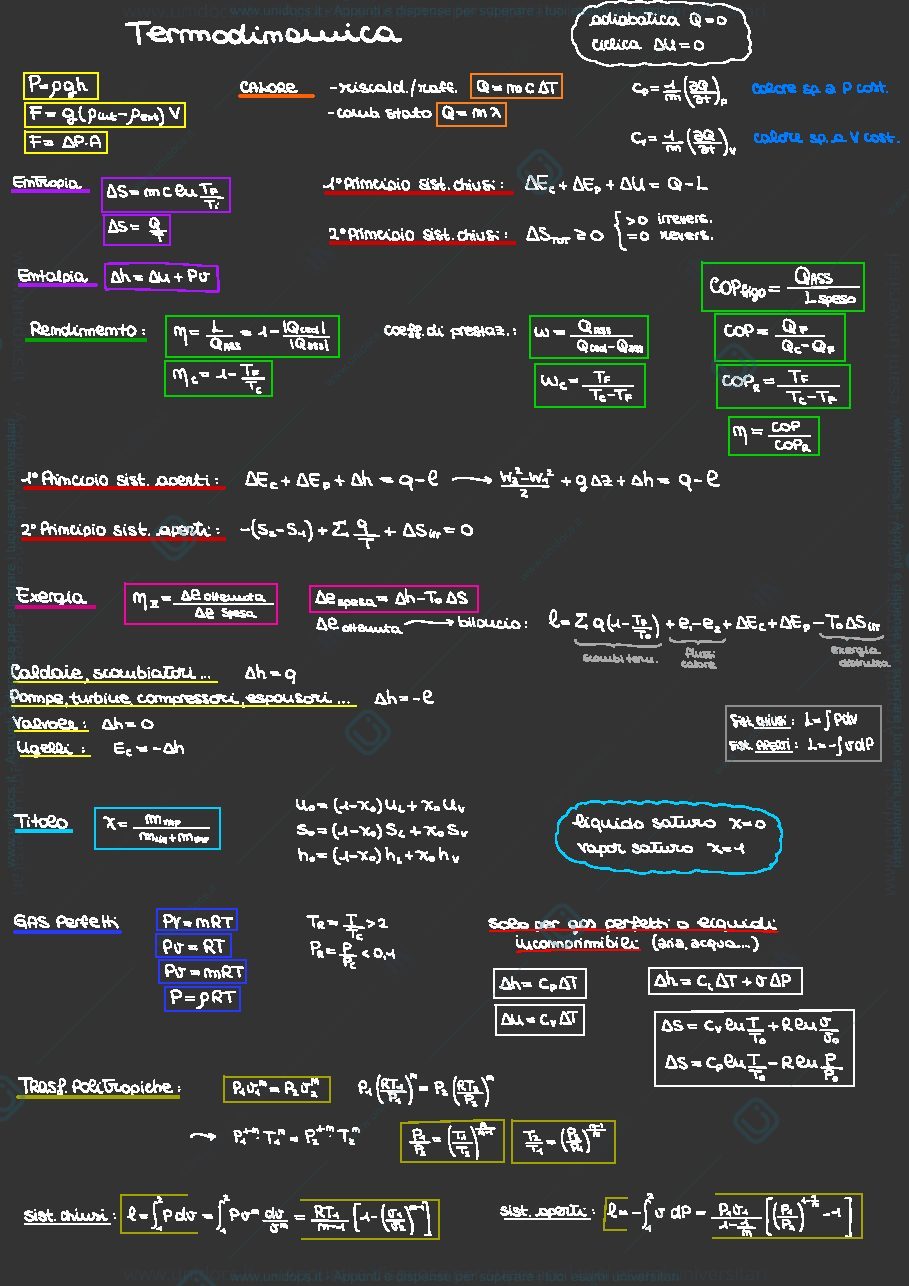 www.unidocs.it - Appunti e dispense per superare i tuoi esami universitari
Termodinamica
adiabatica Q=0
ciclica ΔU=0
P=ρgh
F=g(ρint-ρext)V
F=ΔP·A
CALORE
-riscald./raff. Q=mcΔT
-camb stato Q=mλ
Cp=1/m(∂Q/∂t)p calore sp. a P cost.
Cv=1/m(∂Q/∂t)v calore sp. a V cost.
Entropia ΔS=mc ln TF/Ti
ΔS=Q/T
1° Principio sist. chiusi: ΔEc+ΔEp+ΔU=Q-L
2° Principio sist. chiusi: ΔSTOT≥0 { >0 irrevers. =0 revers.
Entalpia Δh=Δu+Pv
Rendimento: η=L/QASS=1-|Qced|/|Qass|
ηc=1-TF/Tc
coeff. di prestaz.: ω=Qass/Qced-Qass
ωc=TF/Tc-TF
COPfrigo=QASS/Lspeso
COP=QF/Qc-QF
COPR=TF/Tc-TF
η=COP/COPR
1° Principio sist. aperti: ΔEc+ΔEp+Δh=q-l → W2²-W1²/2+gΔz+Δh=q-l
2° Principio sist. aperti: -(S2-S1)+Σq/T+ΔSirr=0
Exergia ηII=Δe ottenuta/Δe spesa
Δe spesa=Δh-T0ΔS
Δe ottenuta → bilancio: l=Σq(1-TF/T0)+e1-e2+ΔEc+ΔEp-T0ΔSirr
scambi term. flussi calore exergia distrutta
Caldaie, scambiatori... Δh=q
Pompe, turbine, compressori, espansori... Δh=-l
Valvole: Δh=0
Ugelli: Ec=-Δh
Sist. CHIUSI: L=∫Pdv
Sist. APERTI: L=-∫vdP
Titolo x=mvap/mliq+mvap
u0=(1-x0)uL+x0uv
s0=(1-x0)sL+x0sv
h0=(1-x0)hL+x0hv
liquido saturo x=0
vapor saturo x=1
GAS Perfetti
PV=mRT
Pv=RT
Pv=mRT
P=ρRT
TR=T/Tc>2
PR=P/Pc<0,1
solo per gas perfetti o liquidi
incomprimibili (aria, acqua...)
Δh=CpΔT
Δu=CvΔT
Δh=CLΔT+vΔP
ΔS=Cv ln T/T0+R ln v/v0
ΔS=Cp ln T/T0-R ln P/P0
Trasf. Politropiche:
P1v1ⁿ=P2v2ⁿ
P1(RT1/P1)ⁿ=P2(RT2/P2)ⁿ
sist. chiusi: l=∫₁²Pdv=∫₁²Pvⁿ dv/vⁿ=RT1/n-1[1-(v1/v2)ⁿ⁻¹]
sist. aperti: l=-∫₁²v dP
www.unidocs.it - Appunti e dispense per superare i tuoi esami universitari